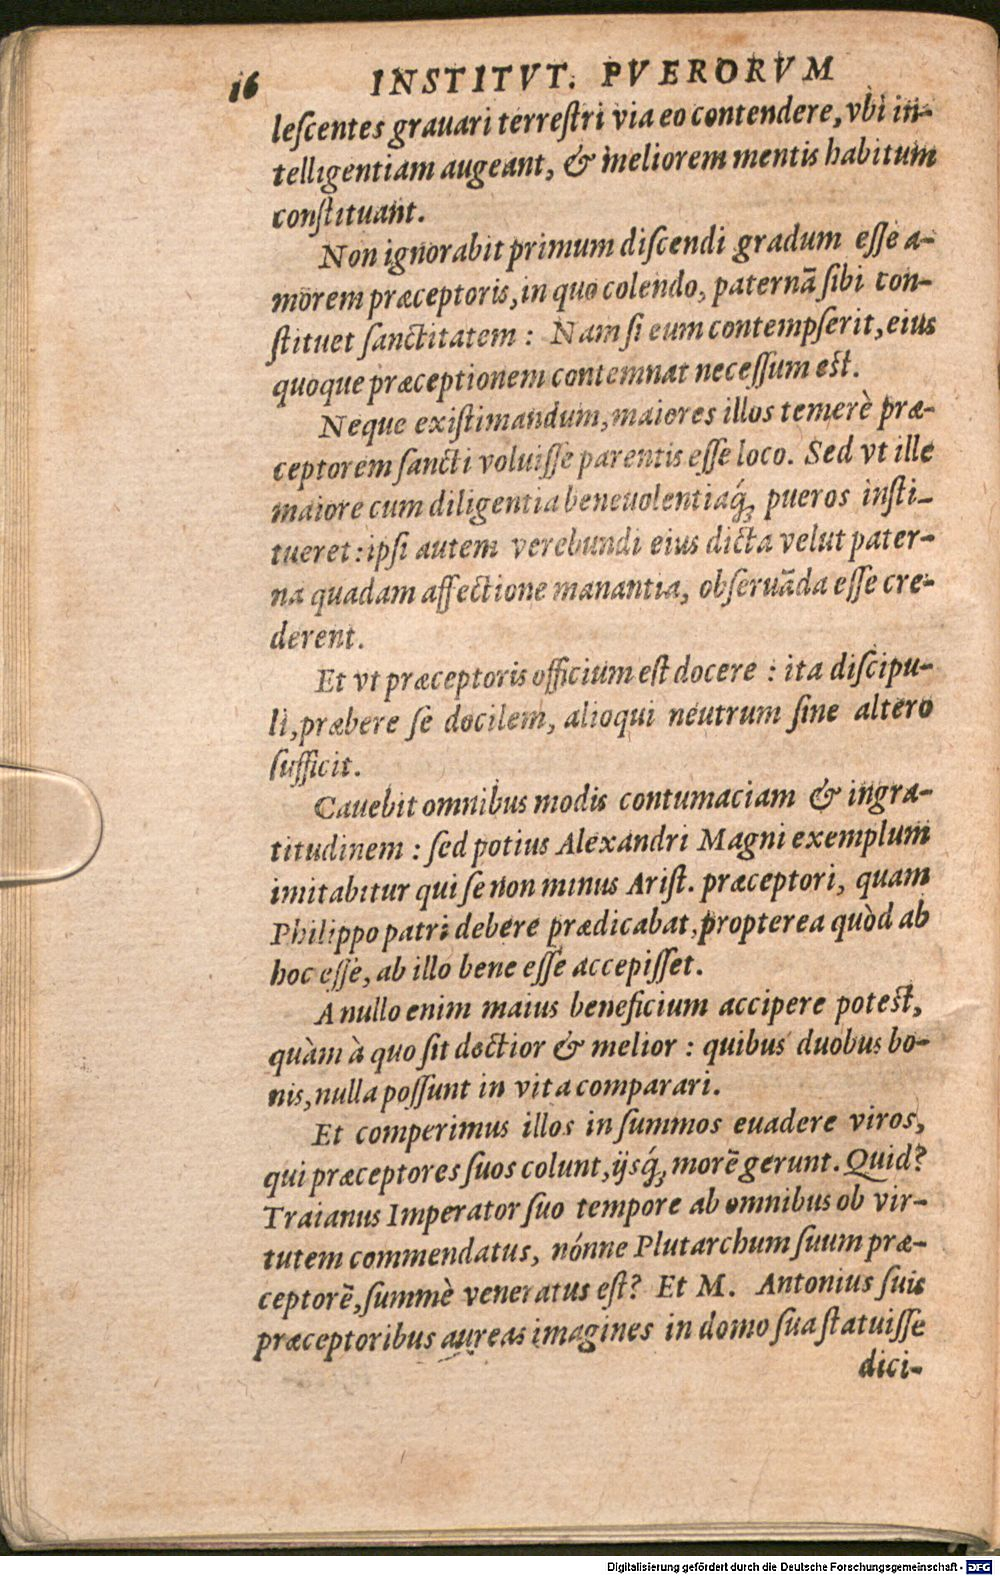 16 INSTITVT. PVERORVM
leſcentes grauari terreſtri via eo contendere, vbi in-
telligentiam augeant, & meliorem mentis habitum
conſtituant.
Non ignorabit primum diſcendi gradum eſſe a-
morem præceptoris, in quo colendo, paternā ſibi con-
ſtituet ſanctitatem : Nam ſi eum contempſerit, eius
quoque præceptionem contemnat neceſſum est.
Neque exiſtimandum, maiores illos temerè præ-
ceptorem ſancti voluiſſe parentis eſſe loco. Sed vt ille
maiore cum diligentia beneuolentiaq́; pueros inſti-
tueret : ipſi autem verebundi eius dicta velut pater-
na quadam affectione manantia, obſeruāda eſſe cre-
derent.
Et vt præceptoris officium eſt docere : ita diſcipu-
li, præbere ſe docilem, alioqui neutrum ſine altero
ſufficit.
Cauebit omnibus modis contumaciam & ingra-
titudinem : ſed potius Alexandri Magni exemplum
imitabitur qui ſe non minus Ariſt. præceptori, quam
Philippo patri debere prædicabat, propterea quòd ab
hoc eſſe, ab illo bene eſſe accepiſſet.
A nullo enim maius beneficium accipere potest,
quàm à quo ſit doctior & melior : quibus duobus bo-
nis, nulla poſſunt in vita comparari.
Et comperimus illos in ſummos euadere viros,
qui præceptores ſuos colunt, ijsq́; morē gerunt. Quid?
Traianus Imperator ſuo tempore ab omnibus ob vir-
tutem commendatus, nónne Plutarchum ſuum præ-
ceptorē, ſummè veneratus eſt? Et M. Antonius ſuis
præceptoribus aureas imagines in domo ſua ſtatuiſſe
dici-
Digitalisierung gefördert durch die Deutsche Forschungsgemeinschaft - DFG